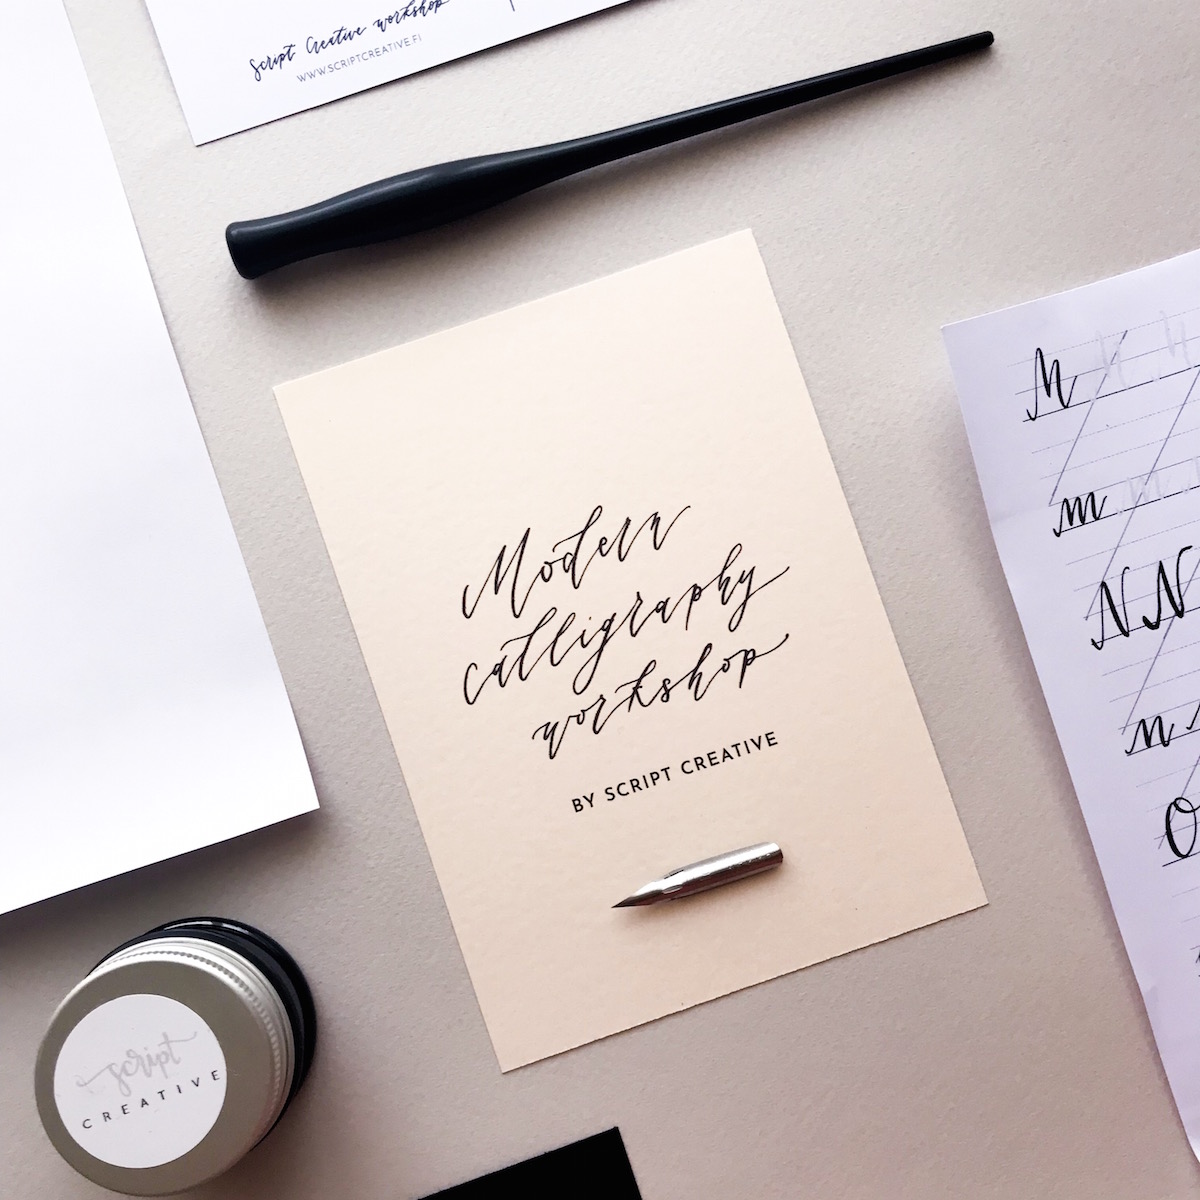 Script Creative workshop
WWW.SCRIPTCREATIVE.FI
Modern
calligraphy
workshop
BY SCRIPT CREATIVE
M
m
N N
n
O
script
CREATIVE